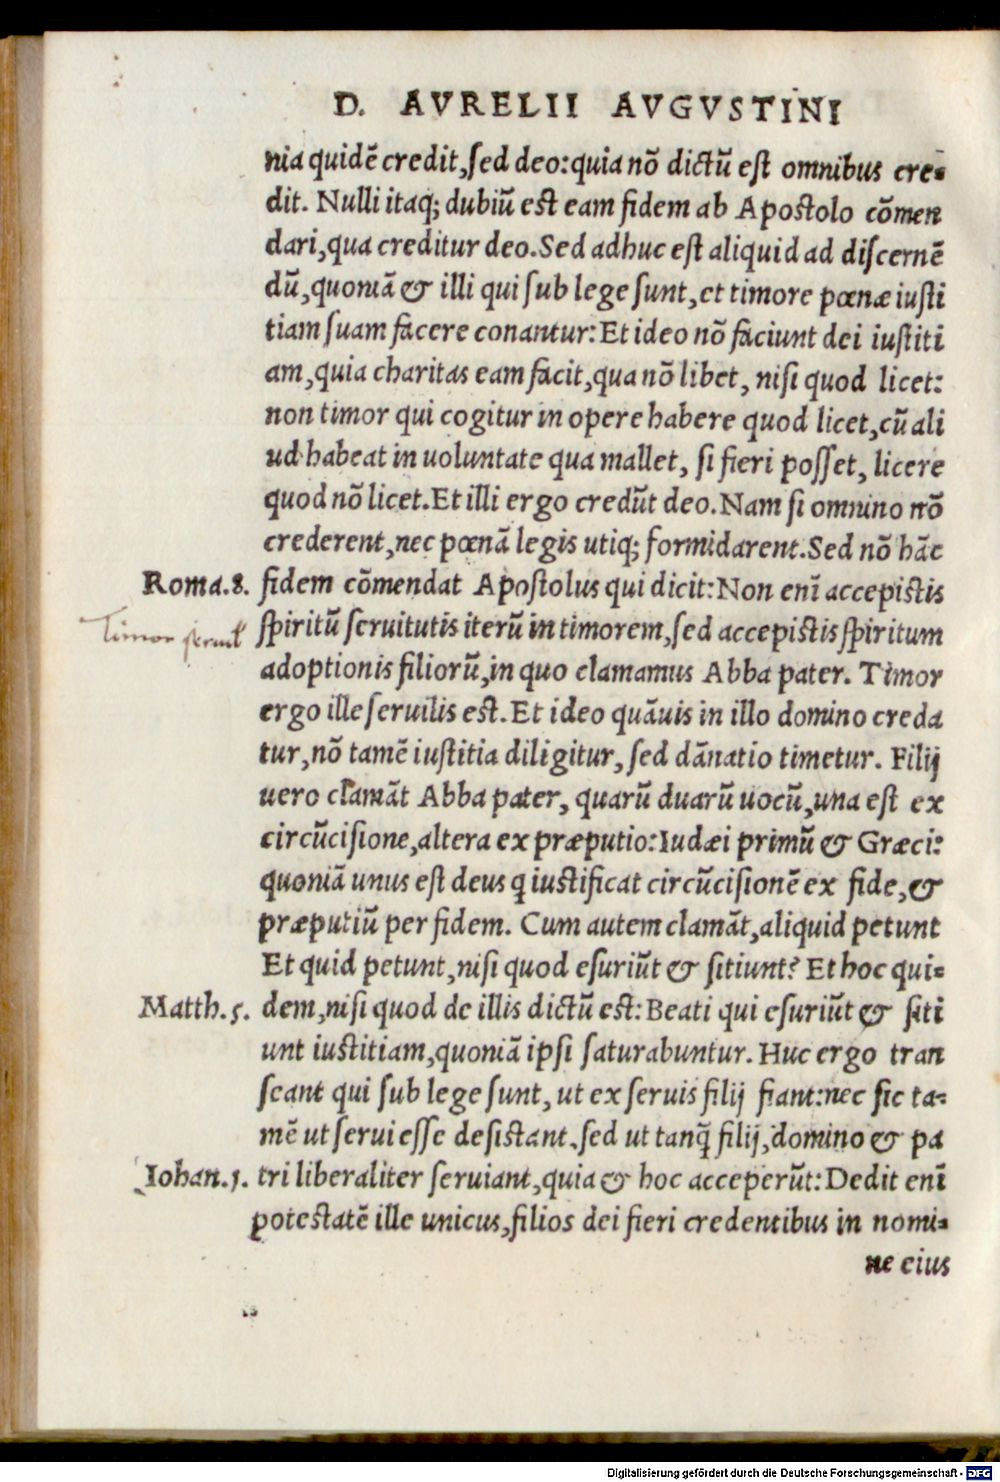 D. AVRELII AVGVSTINI
nia quidē credit, ſed deo: quia nō dictū eſt omnibus cre-
dit. Nulli itaq; dubiū eſt eam fidem ab Apoſtolo cōmen
dari, qua creditur deo. Sed adhuc eſt aliquid ad diſcernē
dū, quoniā & illi qui ſub lege ſunt, et timore pœnæ iuſti
tiam ſuam facere conantur: Et ideo nō faciunt dei iuſtiti
am, quia charitas eam facit, qua nō libet, niſi quod licet:
non timor qui cogitur in opere habere quod licet, cū ali
ud habeat in uoluntate qua mallet, ſi fieri poſſet, licere
quod nō licet. Et illi ergo credūt deo. Nam ſi omnino nō
crederent, nec pœnā legis utiq; formidarent. Sed nō hāc
Roma.8. fidem cōmendat Apoſtolus qui dicit: Non enī accepiſtis
Timor seruil
ſpiritū ſeruitutis iterū in timorem, ſed accepiſtis ſpiritum
adoptionis filiorū, in quo clamamus Abba pater. Timor
ergo ille ſeruilis eſt. Et ideo quāuis in illo domino creda
tur, nō tamē iuſtitia diligitur, ſed dānatio timetur. Filij
uero clamāt Abba pater, quarū duarū uocū, una eſt ex
circūciſione, altera ex præputio: Iudæi primū & Græci:
quoniā unus eſt deus q iuſtificat circūciſionē ex fide, &
præputiū per fidem. Cum autem clamāt, aliquid petunt
Et quid petunt, niſi quod eſuriūt & ſitiunt? Et hoc qui-
Matth.5. dem, niſi quod de illis dictū eſt: Beati qui eſuriūt & ſiti
unt iuſtitiam, quoniā ipſi ſaturabuntur. Huc ergo tran
ſeant qui ſub lege ſunt, ut ex ſeruis filij fiant: nec ſic ta-
mē ut ſerui eſſe deſiſtant, ſed ut tanq̄ filij, domino & pa
Iohan.1. tri liberaliter ſeruiant, quia & hoc acceperūt: Dedit enī
poteſtatē ille unicus, filios dei fieri credentibus in nomi-
ne eius
Digitalisierung gefördert durch die Deutsche Forschungsgemeinschaft - DFG